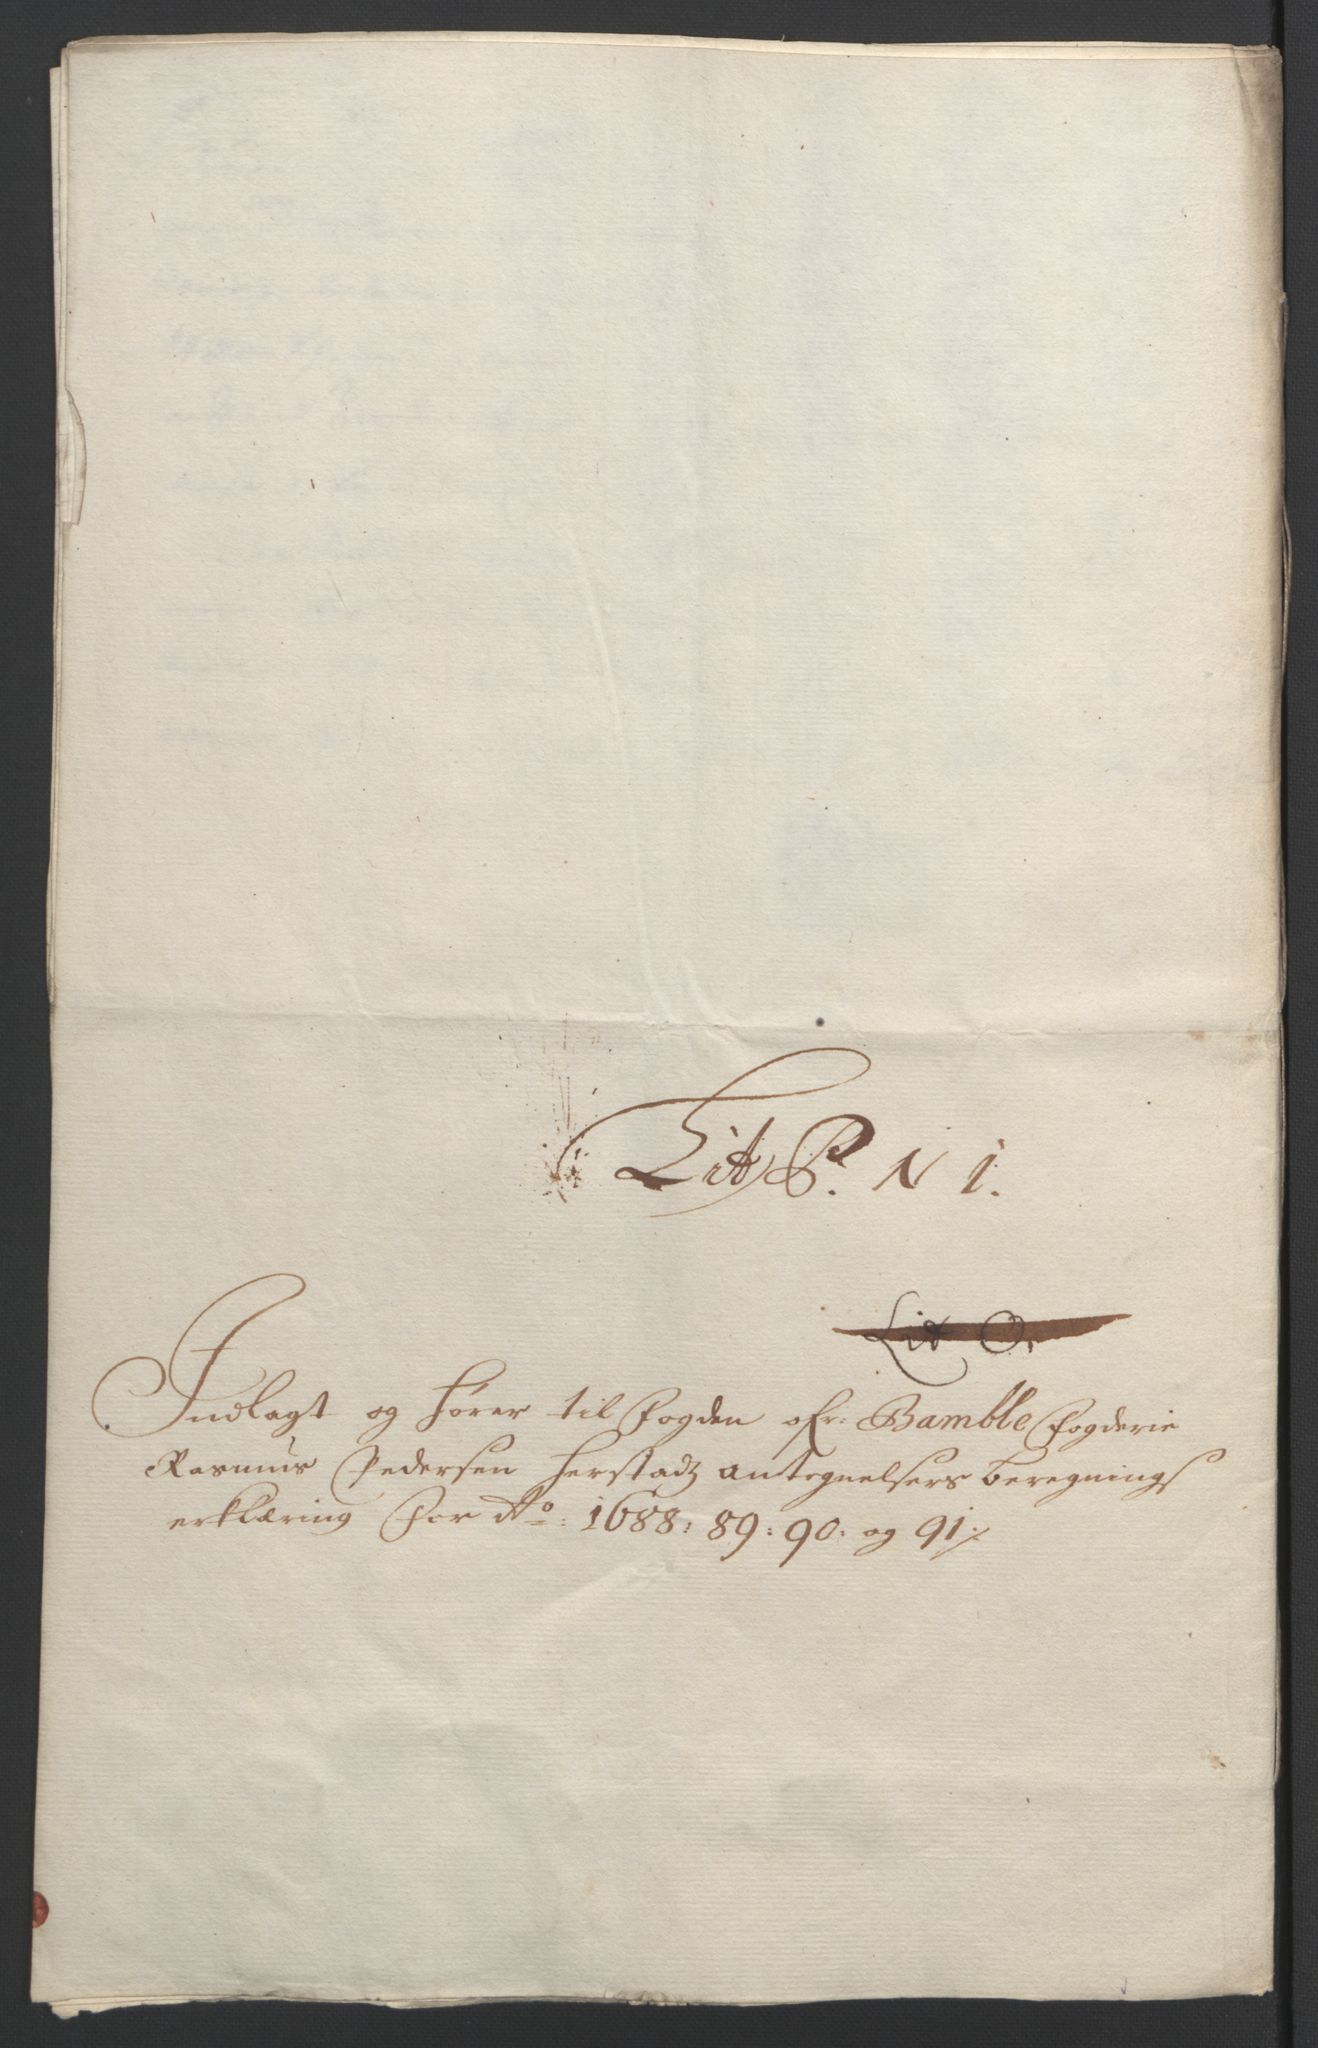 Lit P. N 1.
Lit O.
Indlagt og hører til Fogden ofr: Bamble Fogderie
Rasmus Pedersen Herstadz antegnelsers beregnings
erklæring for Ao: 1688: 89: 90: og 91 ⁒